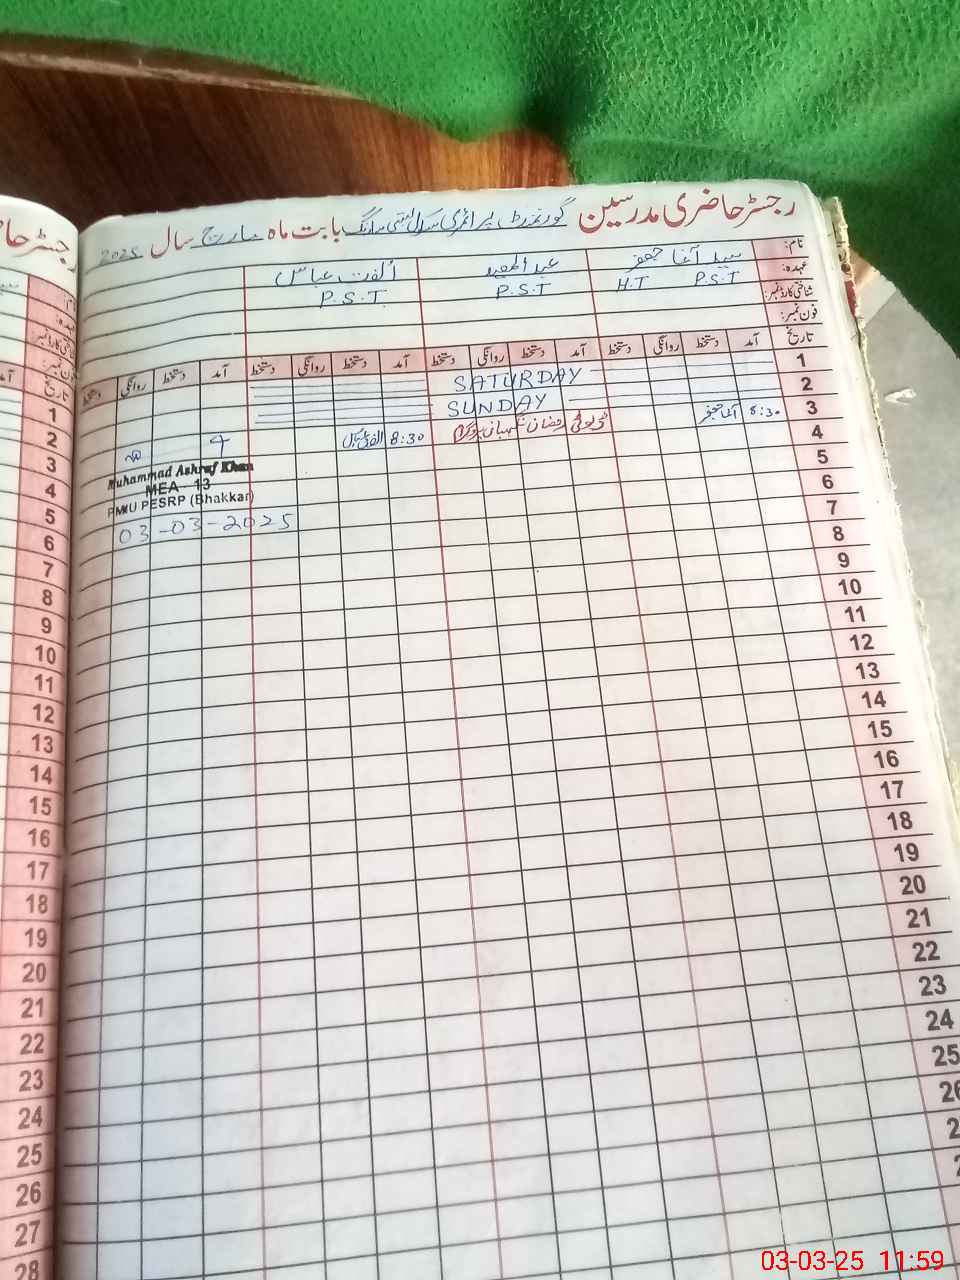 رجسٹر حاضری مدرسین گورنمنٹ پرائمری سکول بستی سارنگ بابت ماہ مارچ سال 2025
نام: سید آغا جعفر عبدالحمید الفت عباس
عہدہ: P.S.T H.T P.S.T P.S.T
شناختی کارڈ نمبر:
فون نمبر:
تاریخ آمد دستخط روانگی دستخط آمد دستخط روانگی دستخط آمد دستخط روانگی دستخط آمد دستخط روانگی دستخط
1 SATURDAY
2 SUNDAY
3 8:30 آغا جعفر ڈیوٹی رمضان نگہبان پروگرام 8:30 الفت عباس 4
4
Muhammad Ashraf Khan
5
MEA - 13
6
PMIU PESRP (Bhakkar)
7
03-03-2025
8
9
10
11
12
13
14
15
16
17
18
19
20
21
22
23
24
25
26
رجسٹر حا
نام:
عہدہ:
شناختی کارڈ نمبر:
فون نمبر:
تاریخ
آمد
1
2
3
4
5
6
7
8
9
10
11
12
13
14
15
16
17
18
19
20
21
22
23
24
25
26
27
28
03-03-25 11:59